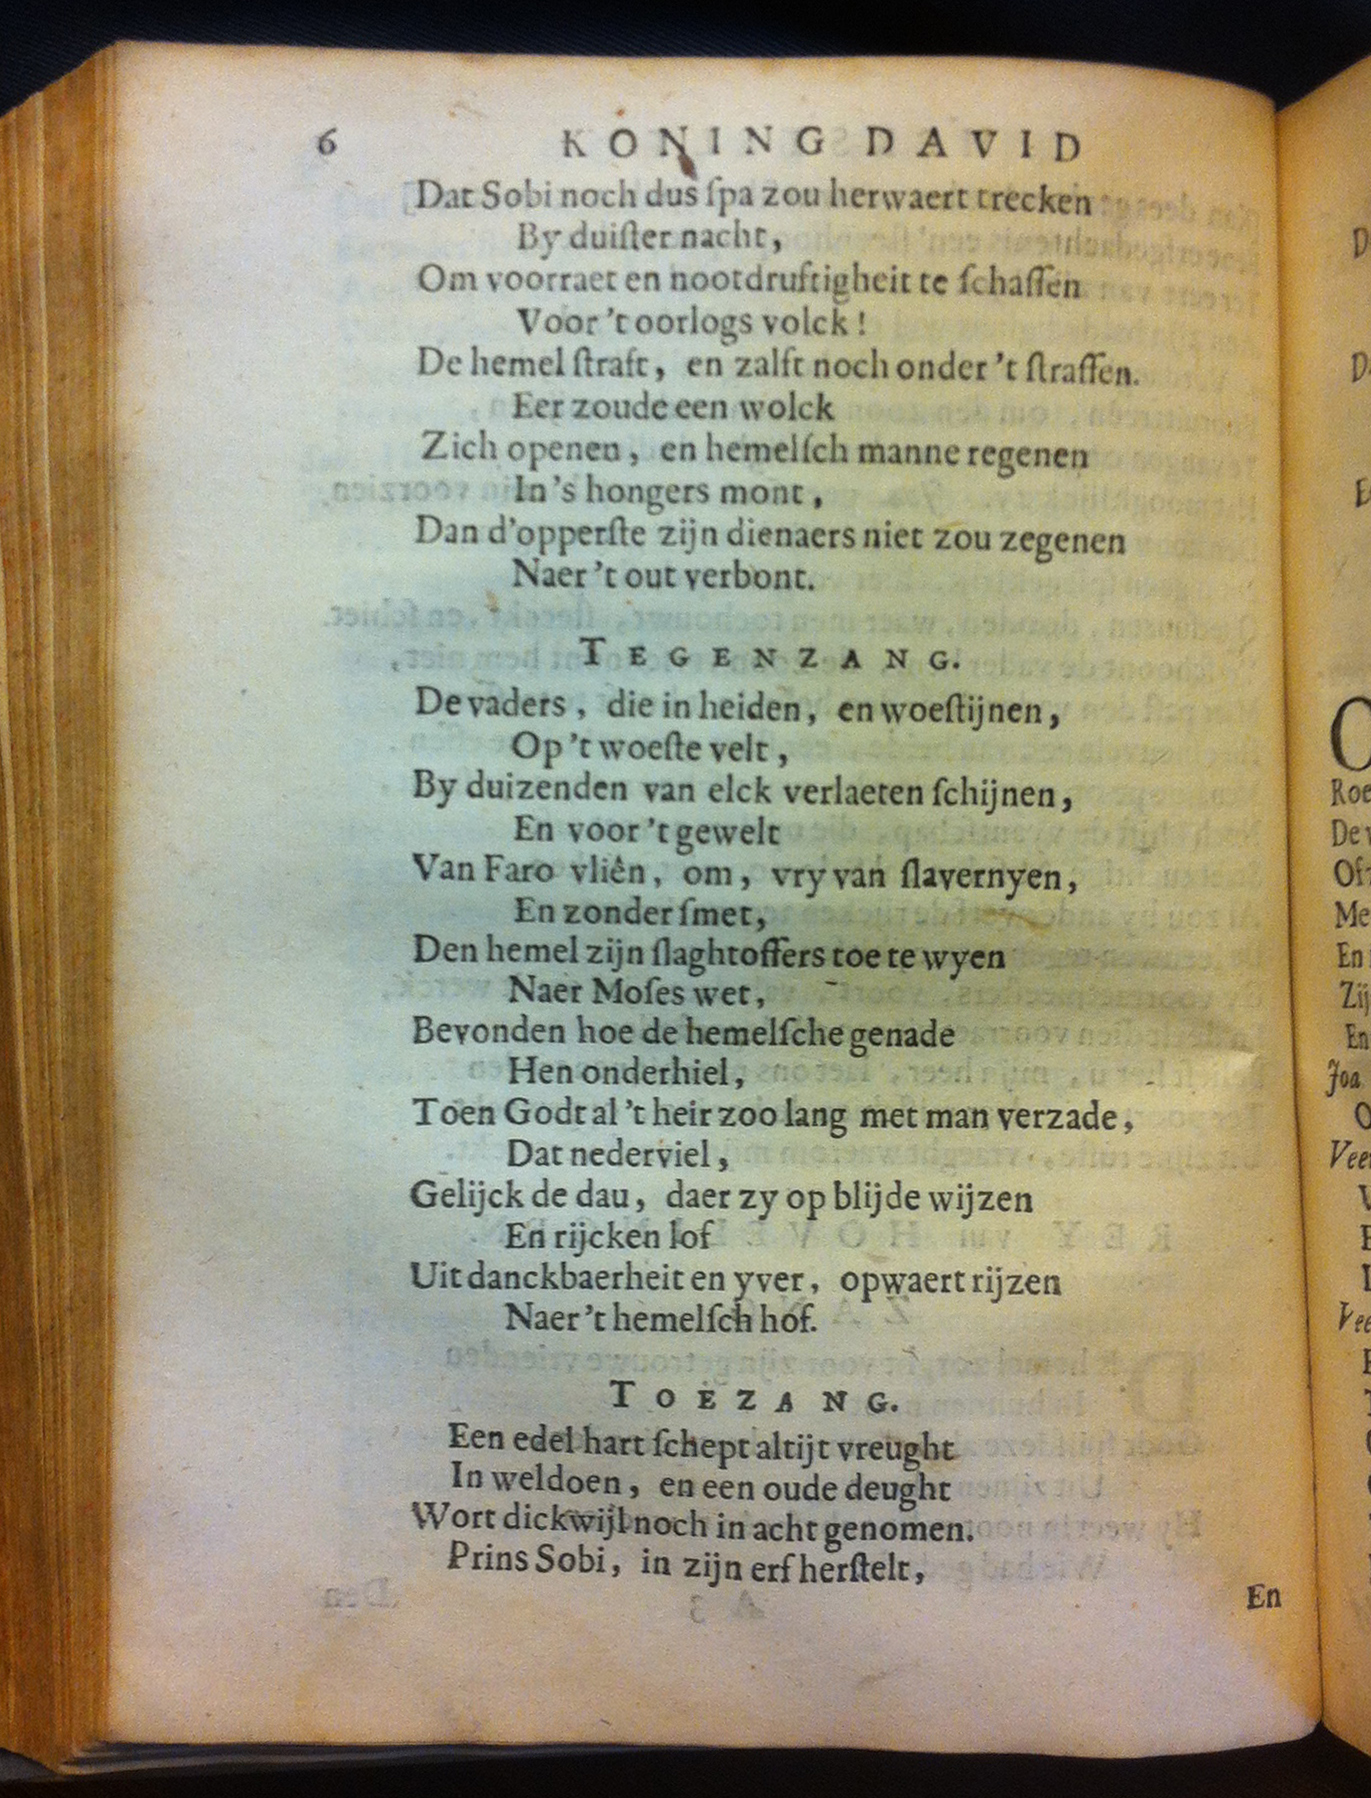 6 KONING DAVID
Dat Sobi noch dus ſpa zou herwaert trecken
By duiſter nacht,
Om voorraet en nootdruftigheit te ſchaffen
Voor 't oorlogs volck!
De hemel ſtraft, en zalft noch onder 't ſtraffen.
Eer zoude een wolck
Zich openen, en hemelſch manne regenen
In 's hongers mont,
Dan d'opperſte zijn dienaers niet zou zegenen
Naer 't out verbont.
TEGENZANG.
De vaders, die in heiden, en woeſtijnen,
Op 't woeſte velt,
By duizenden van elck verlaeten ſchijnen,
En voor 't gewelt
Van Faro vliên, om, vry van ſlavernyen,
En zonder ſmet,
Den hemel zijn ſlaghtoffers toe te wyen
Naer Moſes wet,
Bevonden hoe de hemelſche genade
Hen onderhiel,
Toen Godt al 't heir zoo lang met man verzade,
Dat nederviel,
Gelijck de dau, daer zy op blijde wijzen
En rijcken lof
Uit danckbaerheit en yver, opwaert rijzen
Naer 't hemelſch hof.
TOEZANG.
Een edel hart ſchept altijt vreught
In weldoen, en een oude deught
Wort dickwijl noch in acht genomen.
Prins Sobi, in zijn erf herſtelt,
En
Roe
Me
En
Zij
En
Joa
Vee